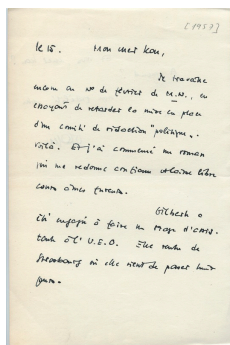 [1957]
le 15. Mon cher Kou,
Je travaille
encore au N° de février de M.N., en
essayant de retarder la mise en place
d'un comité de rédaction "politique".
Voilà. Et j'ai commencé un roman
qui me redonne confiance
Gilberte a
été engagée à faire un stage d'assis-
tante à l'U.E.O. Elle rentre de
Strasbourg où elle vient de passer huit
jours.